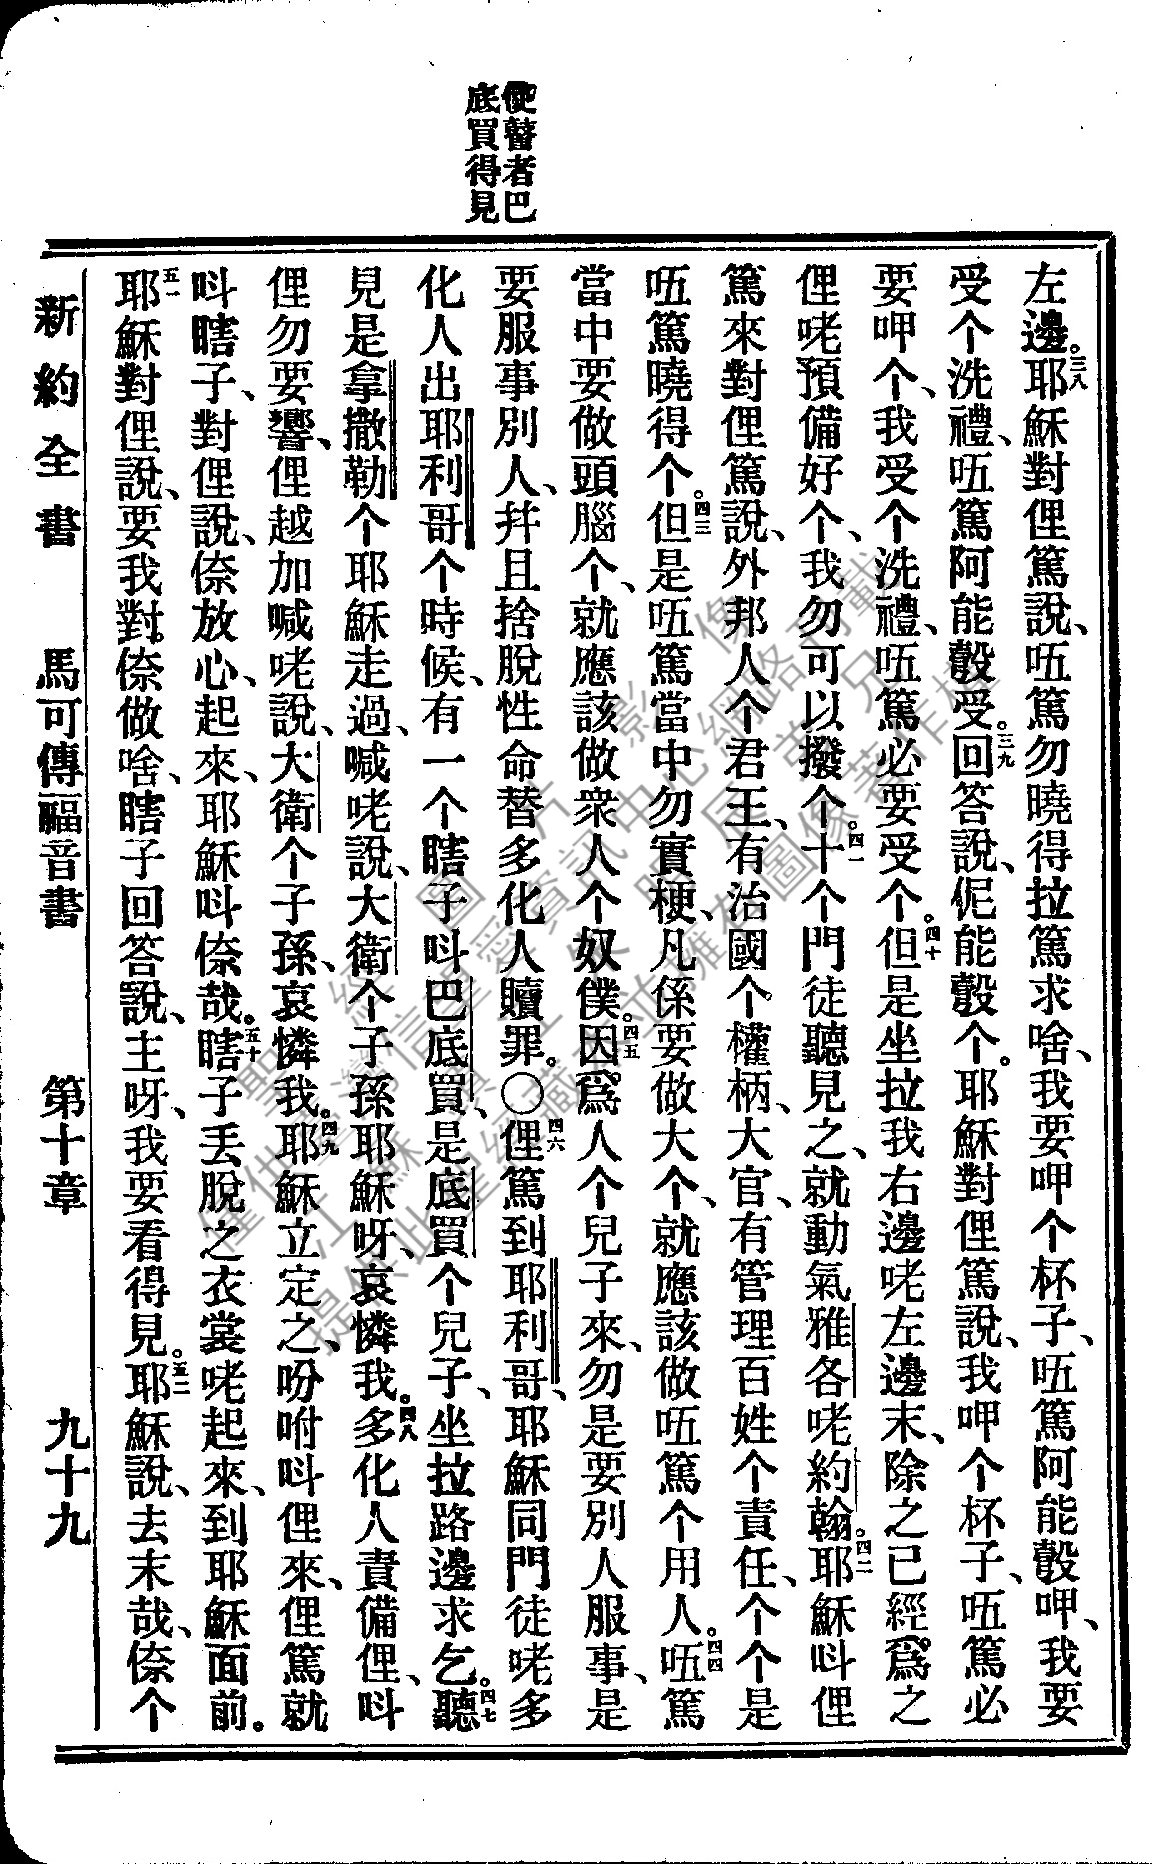 使瞽者巴
底買得見
左邊。三八耶穌對俚篤說、唔篤勿曉得拉篤求啥、我要呷个杯子、唔篤阿能彀呷、我要
受个洗禮、唔篤阿能彀受。三九回答說、伲能彀个。耶穌對俚篤說、我呷个杯子、唔篤必
要呷个、我受个洗禮、唔篤必要受个。四十但是坐拉我右邊咾左邊末、除之已經爲之
俚咾預備好个、我勿可以撥个。四一十个門徒聽見之、就動氣雅各咾約翰。四二耶穌呌俚
篤來對俚篤說、外邦人个君王、有治國个權柄、大官、有管理百姓个責任、个个是
唔篤曉得个。四三但是唔篤當中勿實梗、凡係要做大个、就應該做唔篤个用人。四四唔篤
當中要做頭腦个、就應該做衆人个奴僕。四五因爲人个兒子來、勿是要別人服事、是
要服事別人、幷且捨脫性命替多化人贖罪。〇四六俚篤到耶利哥、耶穌同門徒咾多
化人出耶利哥个時候、有一个瞎子呌巴底買、是底買个兒子、坐拉路邊求乞。四七聽
見是拿撒勒个耶穌走過、喊咾說、大衛个子孫耶穌呀、哀憐我。四八多化人責備俚、呌
俚勿要響、俚越加喊咾說、大衛个子孫、哀憐我。四九耶穌立定之、吩咐呌俚來、俚篤就
呌瞎子、對俚說、倷放心、起來、耶穌呌倷哉。五十瞎子丟脫之衣裳咾起來、到耶穌面前。
五一耶穌對俚說、要我對倷做啥、瞎子回答說、主呀、我要看得見。五二耶穌說、去末哉、倷个
新約全書　馬可傳福音書　第十章　九十九